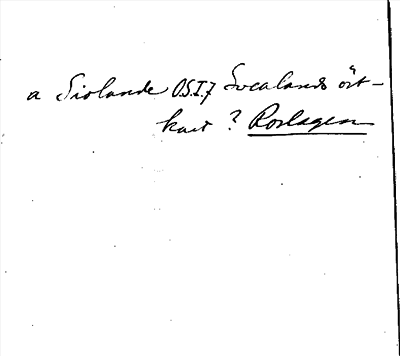 a Siolande O.S.I,7 Svealands öst-
kust ? Roslagen